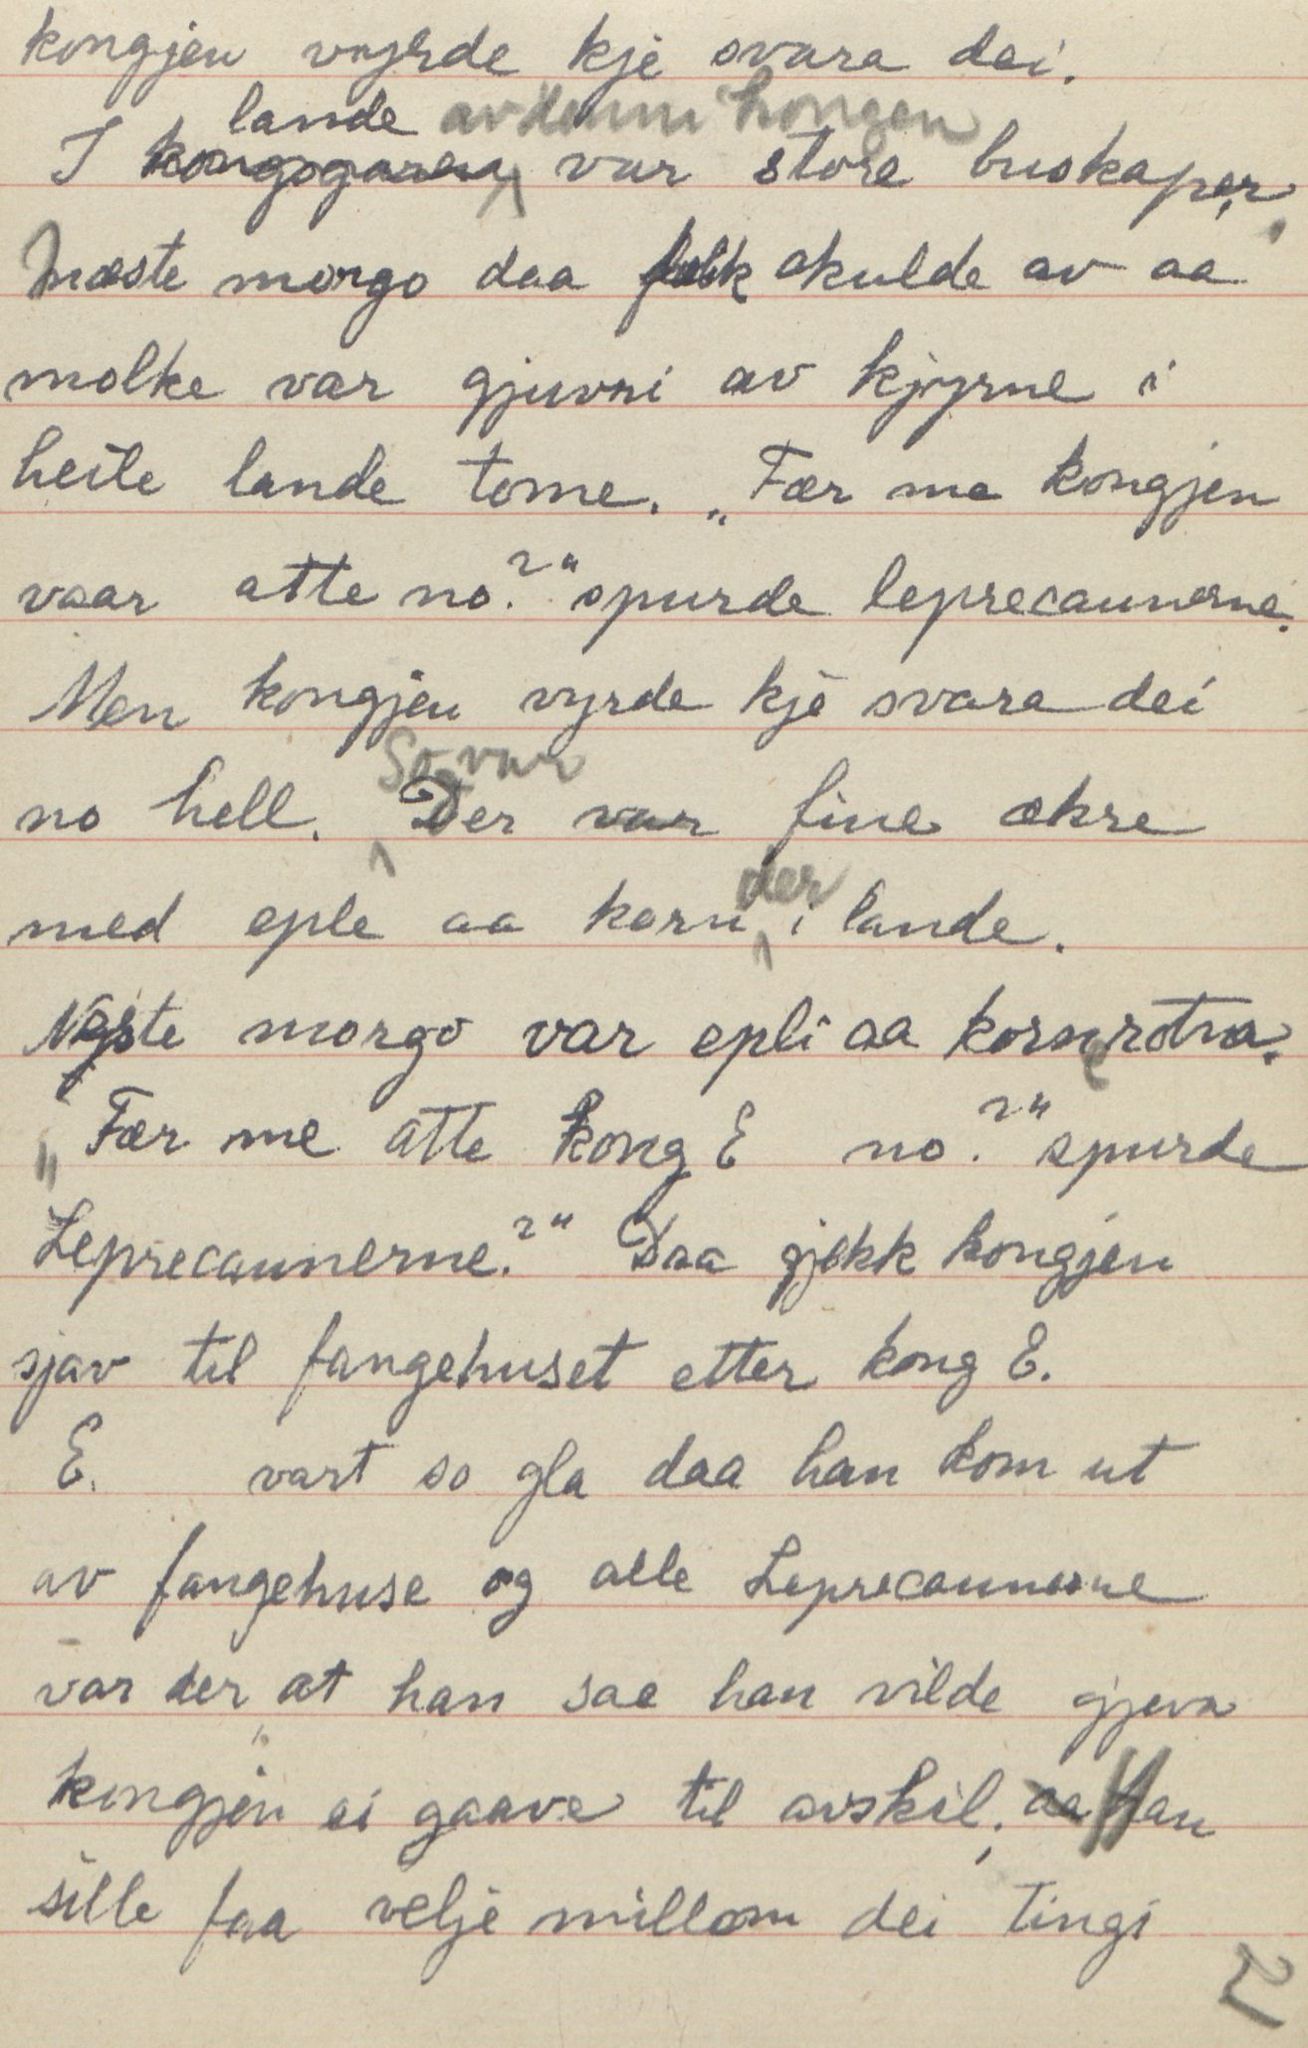 kongjen vyrde kje svara dei.
lande av denni kongen
I kongsgaren var store buskaper.
Næste morgo daa folk skulde av aa
molke var gjuvri av kjyrne i
heile lande tome. „Fær me kongjen
vaar atte no?“ spurde leprecaunerne.
Men kongjen vyrde kje svara dei
So var
no hell. Der var fine okre
der
med eple aa korn i lande.
Næste morgo var epli aa korne rotna.
„Fær me atte kong E no?“ spurde
Leprecaunerne?“ Daa gjekk kongjen
sjav til fangehuset etter kong E.
E. vart so gla daa han kom ut
av fangehuse og alle Leprecaunerne
var der, at han sae han vilde gjeva
kongjen ei gaave til avskil; aa Han
sille faa velje millom dei tingi
2